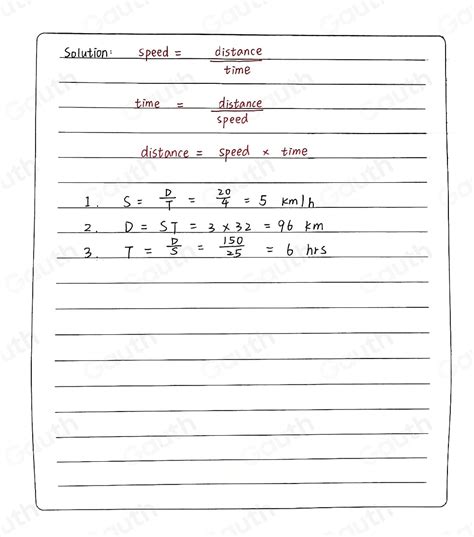 Solution: speed = distance / time
time = distance / speed
distance = speed × time
1. S = D/T = 20/4 = 5 km/h
2. D = ST = 3 × 32 = 96 km
3. T = D/S = 150/25 = 6 hrs
Gauth